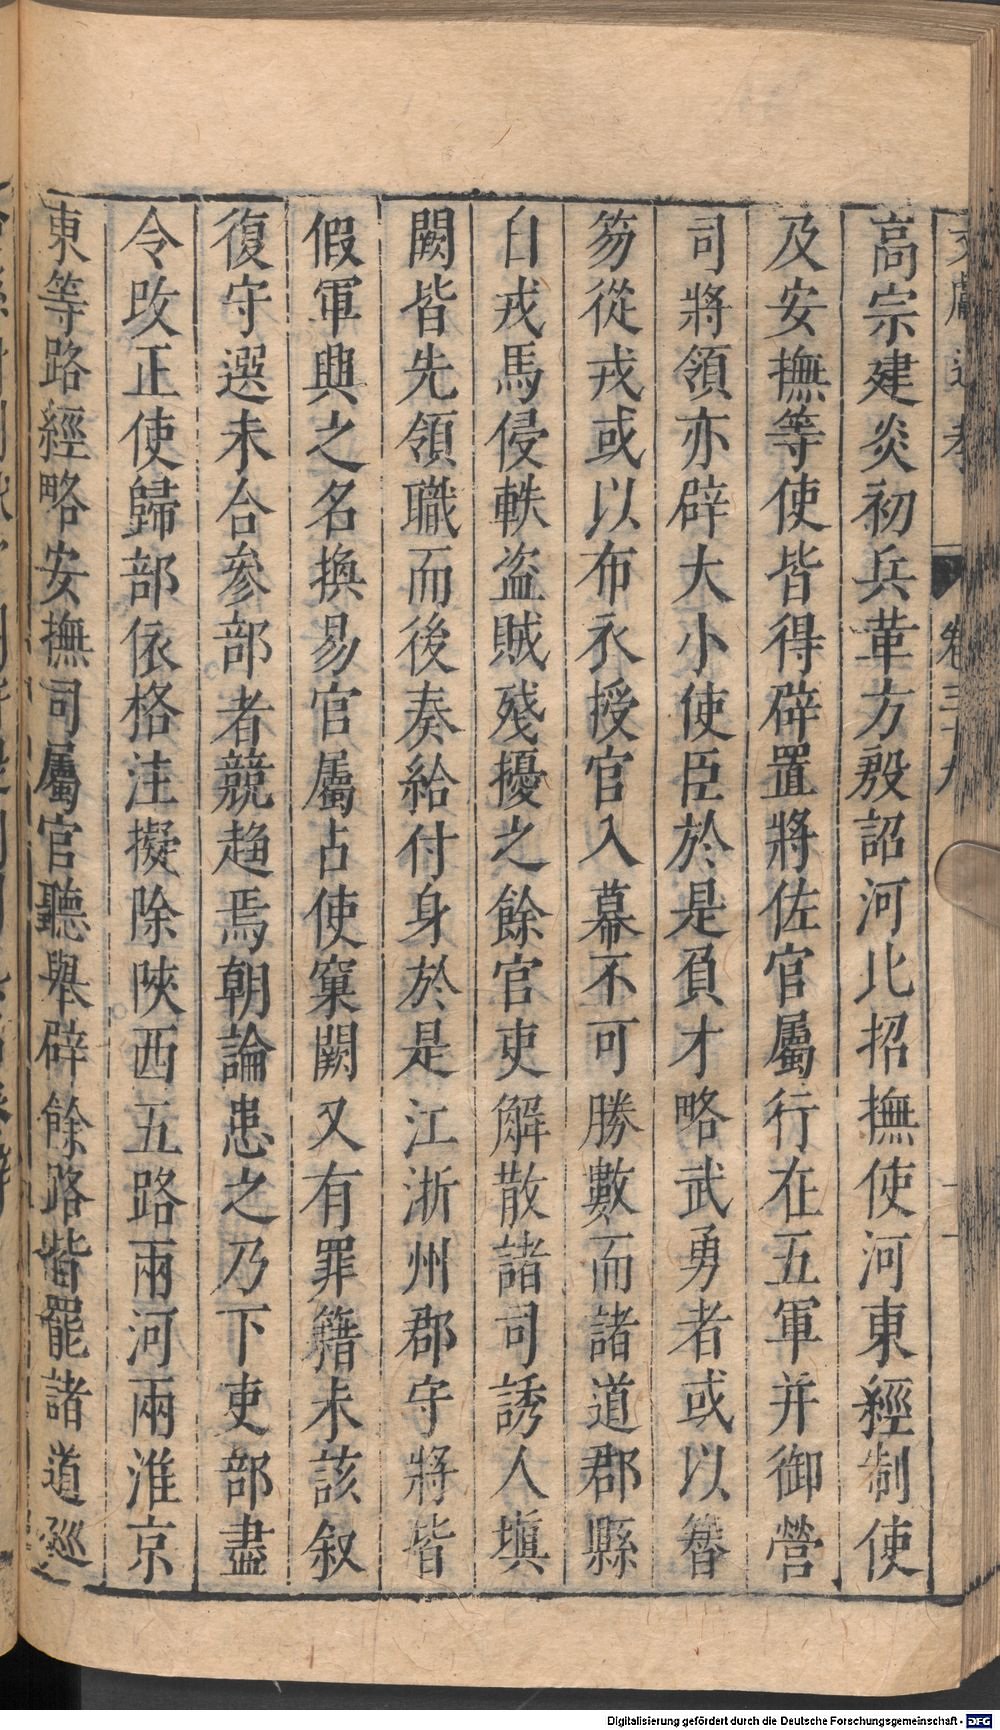 文獻通考 卷三十九
高宗建炎初兵革方殷詔河北招撫使河東經制使
及安撫等使皆得辟置將佐官屬行在五軍并御營
司將領亦辟大小使臣於是負才略武勇者或以簪
笏從戎或以布衣授官入幕不可勝數而諸道郡縣
自戎馬侵軼盜賊殘擾之餘官吏解散諸司誘人塡
闕皆先領職而後奏給付身於是江浙州郡守將皆
假軍興之名換易官屬占使窠闕又有罪籍未該叙
復守選未合參部者競趨焉朝論患之乃下吏部盡
令改正使歸部依格注擬除陝西五路兩河兩淮京
東等路經略安撫司屬官聽舉辟餘路皆罷諸道巡
Digitalisierung gefördert durch die Deutsche Forschungsgemeinschaft - DFG